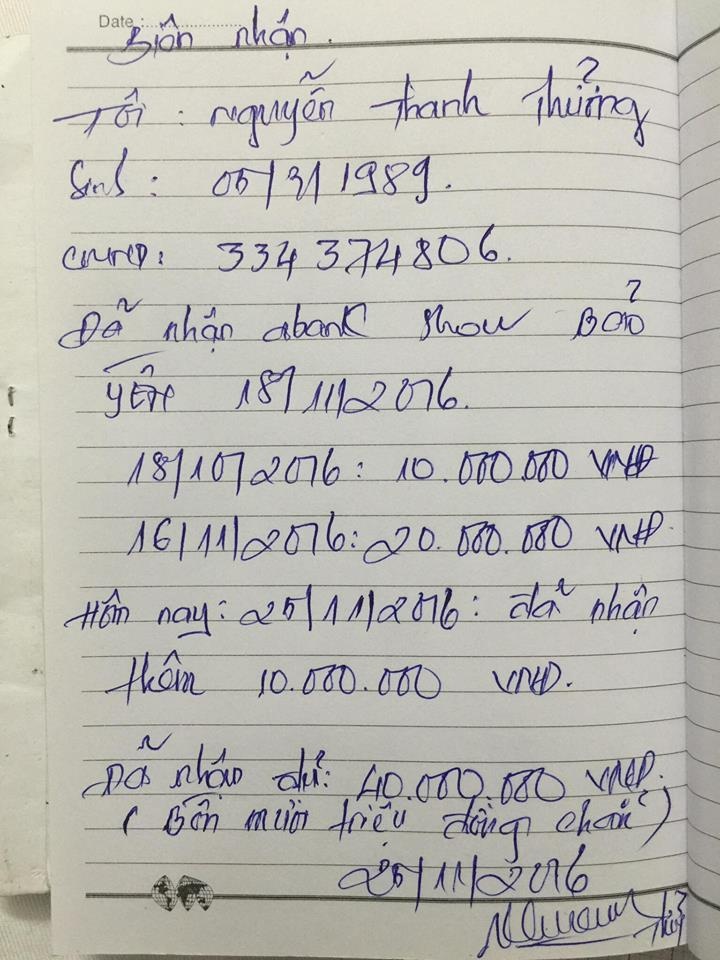 Date :
Biên nhận.
Tôi : Nguyễn Thanh Thưởng
Sinh : 05/3/1989.
CMND: 334 374 806.
Đã nhận abank show Bảo
Yến 18/11/2016.
18/10/2016: 10.000.000 VNĐ
16/11/2016: 20.000.000 VNĐ.
Hôm nay: 25/11/2016: đã nhận
thêm 10.000.000 VNĐ.
Đã nhận đủ: 40.000.000 VNĐ.
( Bốn mươi triệu đồng chẵn )
25/11/2016